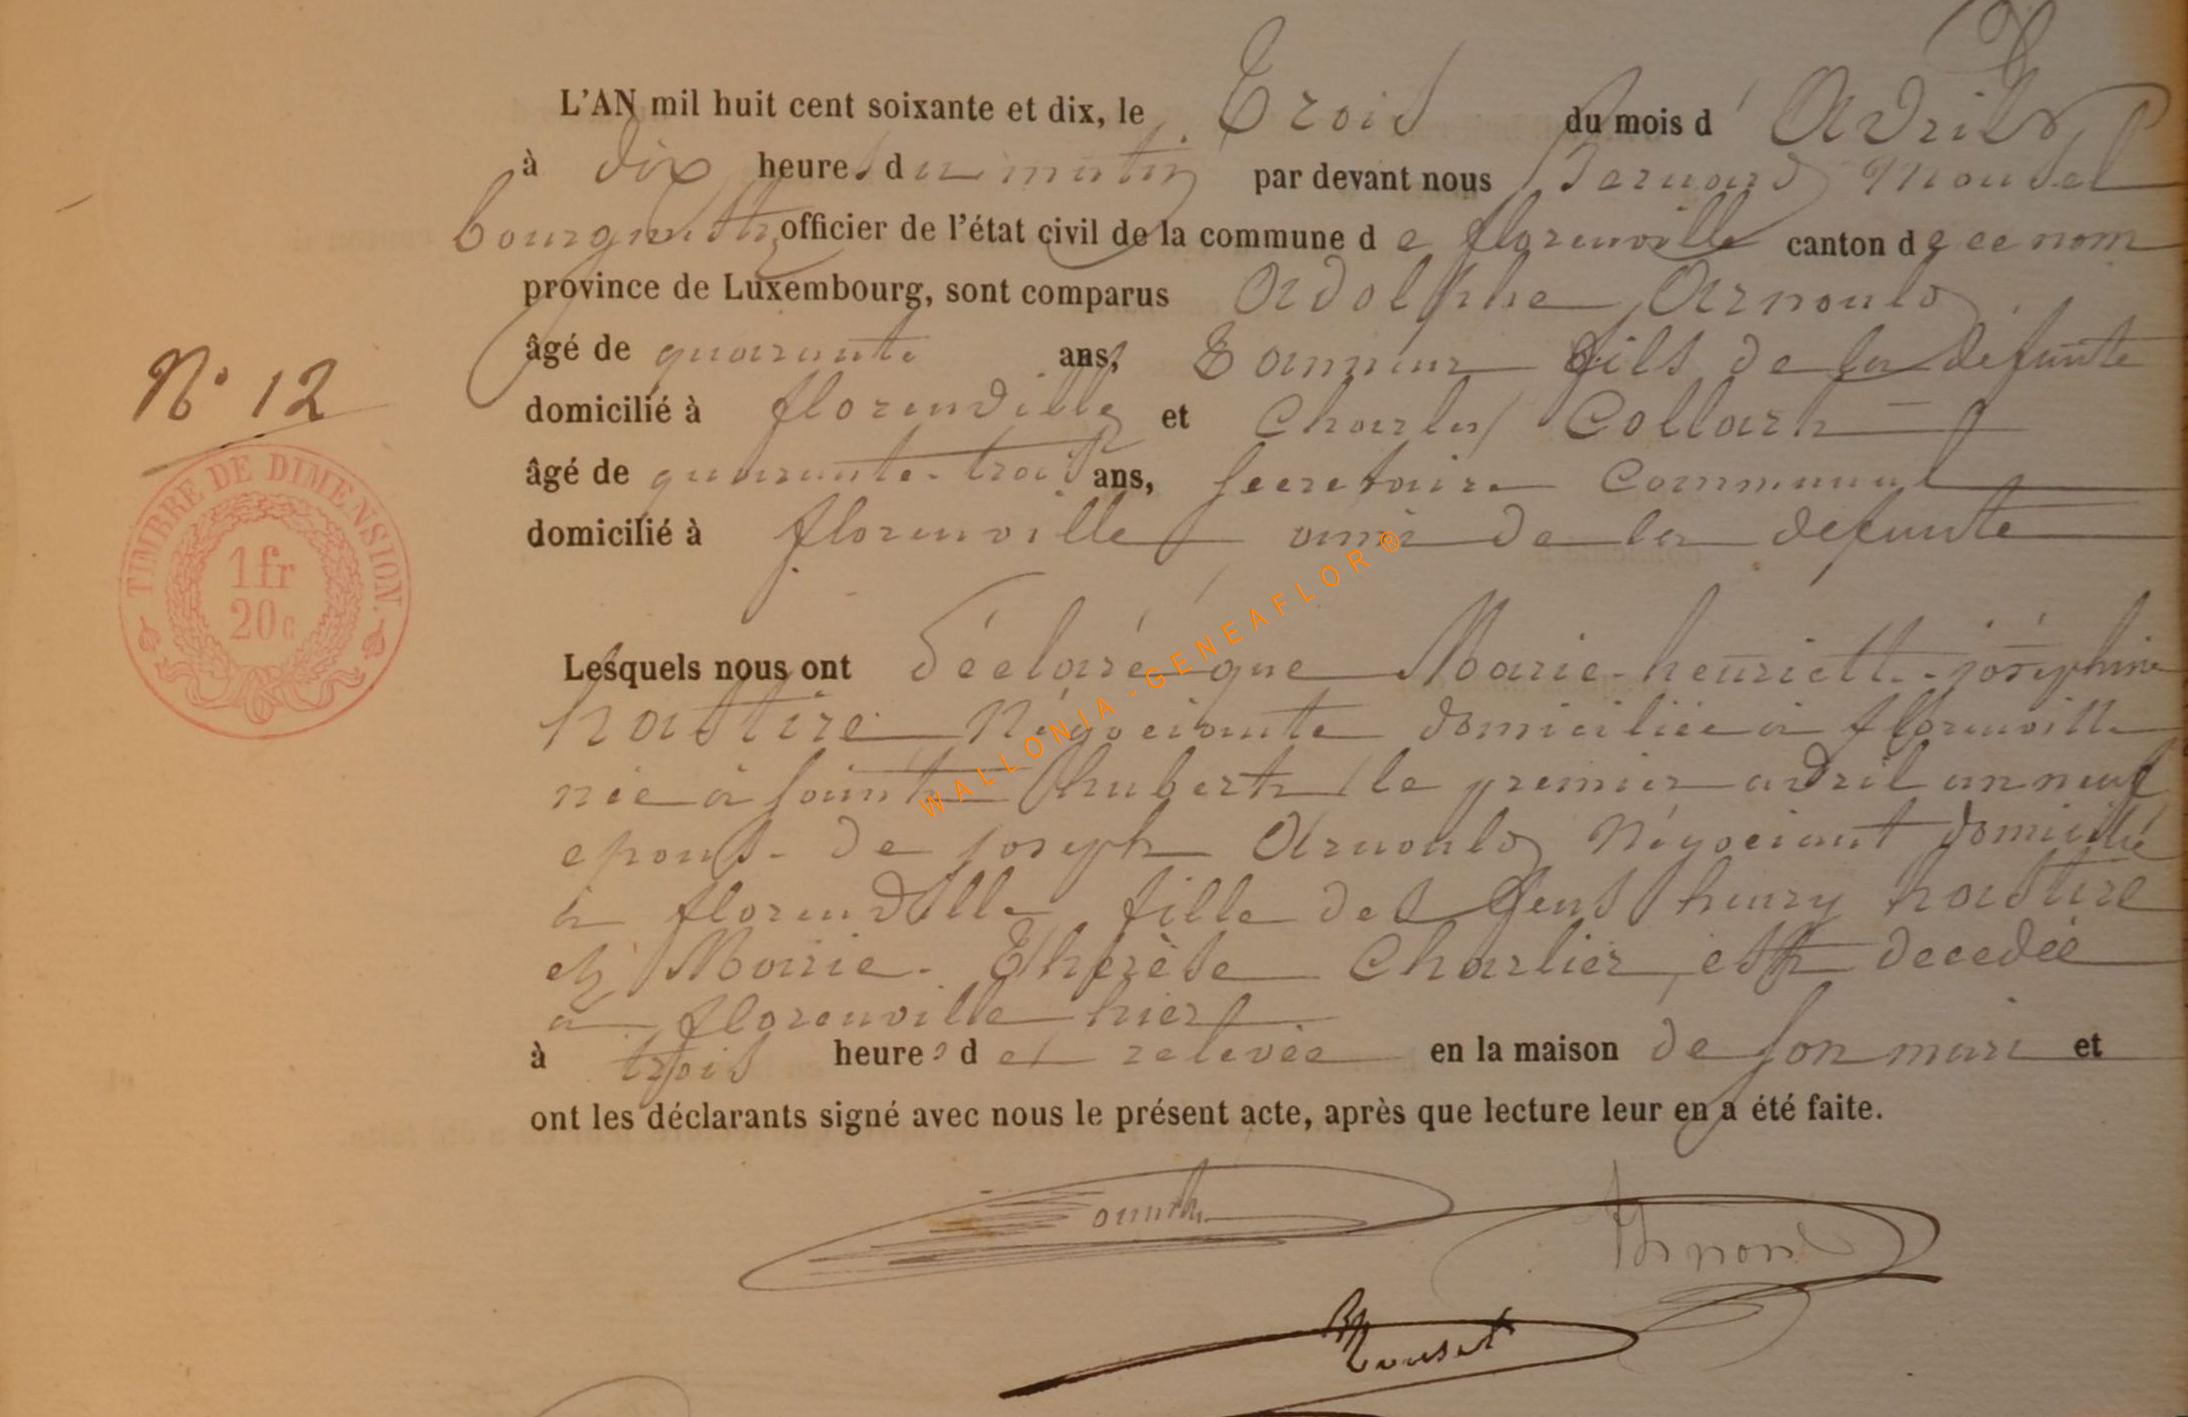 L'AN mil huit cent soixante et dix, le Trois du mois d'Avril
à dix heures du matin par devant nous Bernard Mousel
bourgmestre officier de l'état civil de la commune de florenville canton de ce nom
province de Luxembourg, sont comparus Adolphe Arnould
âgé de quarante ans, Tanneur fils de la défunte
domicilié à florenville et Charles Collart
N° 12
âgé de quarante-trois ans, secretaire Communal
domicilié à florenville ami de la defunte
TIMBRE DE DIMENSION.
1fr
20c
Lesquels nous ont déclaré que Marie-henriette-joséphine
hastire Négociante domiciliée à florenville
née à saint hubert le premier avril an neuf
epouse de joseph Arnould Négociant domicilié
à florenville fille des feus henry hastire
et Marie-Thérèse Charlier, est decedée
à florenville hier
à trois heures de relevée en la maison de son mari et
ont les déclarants signé avec nous le présent acte, après que lecture leur en a été faite.
WALLONIA-GENEAFLOR®